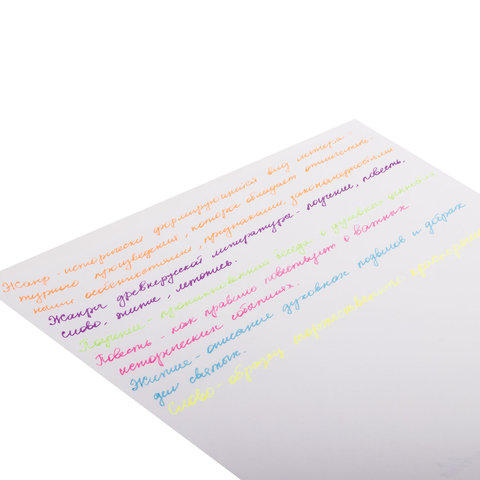 Жанр - исторически формирующийся вид литера-
турного произведения, который обладает отличитель-
ными особенностями, признаками, закономерностями
Жанры древнерусской литературы - поучение, повесть,
слово, житие, летопись.
Поучение - поучительная беседа о духовных ценностях
Повесть - как правило повествует о важных
исторических событиях.
Житие - описание духовных подвигов и добрых
дел святых.
Слово - образец торжественного